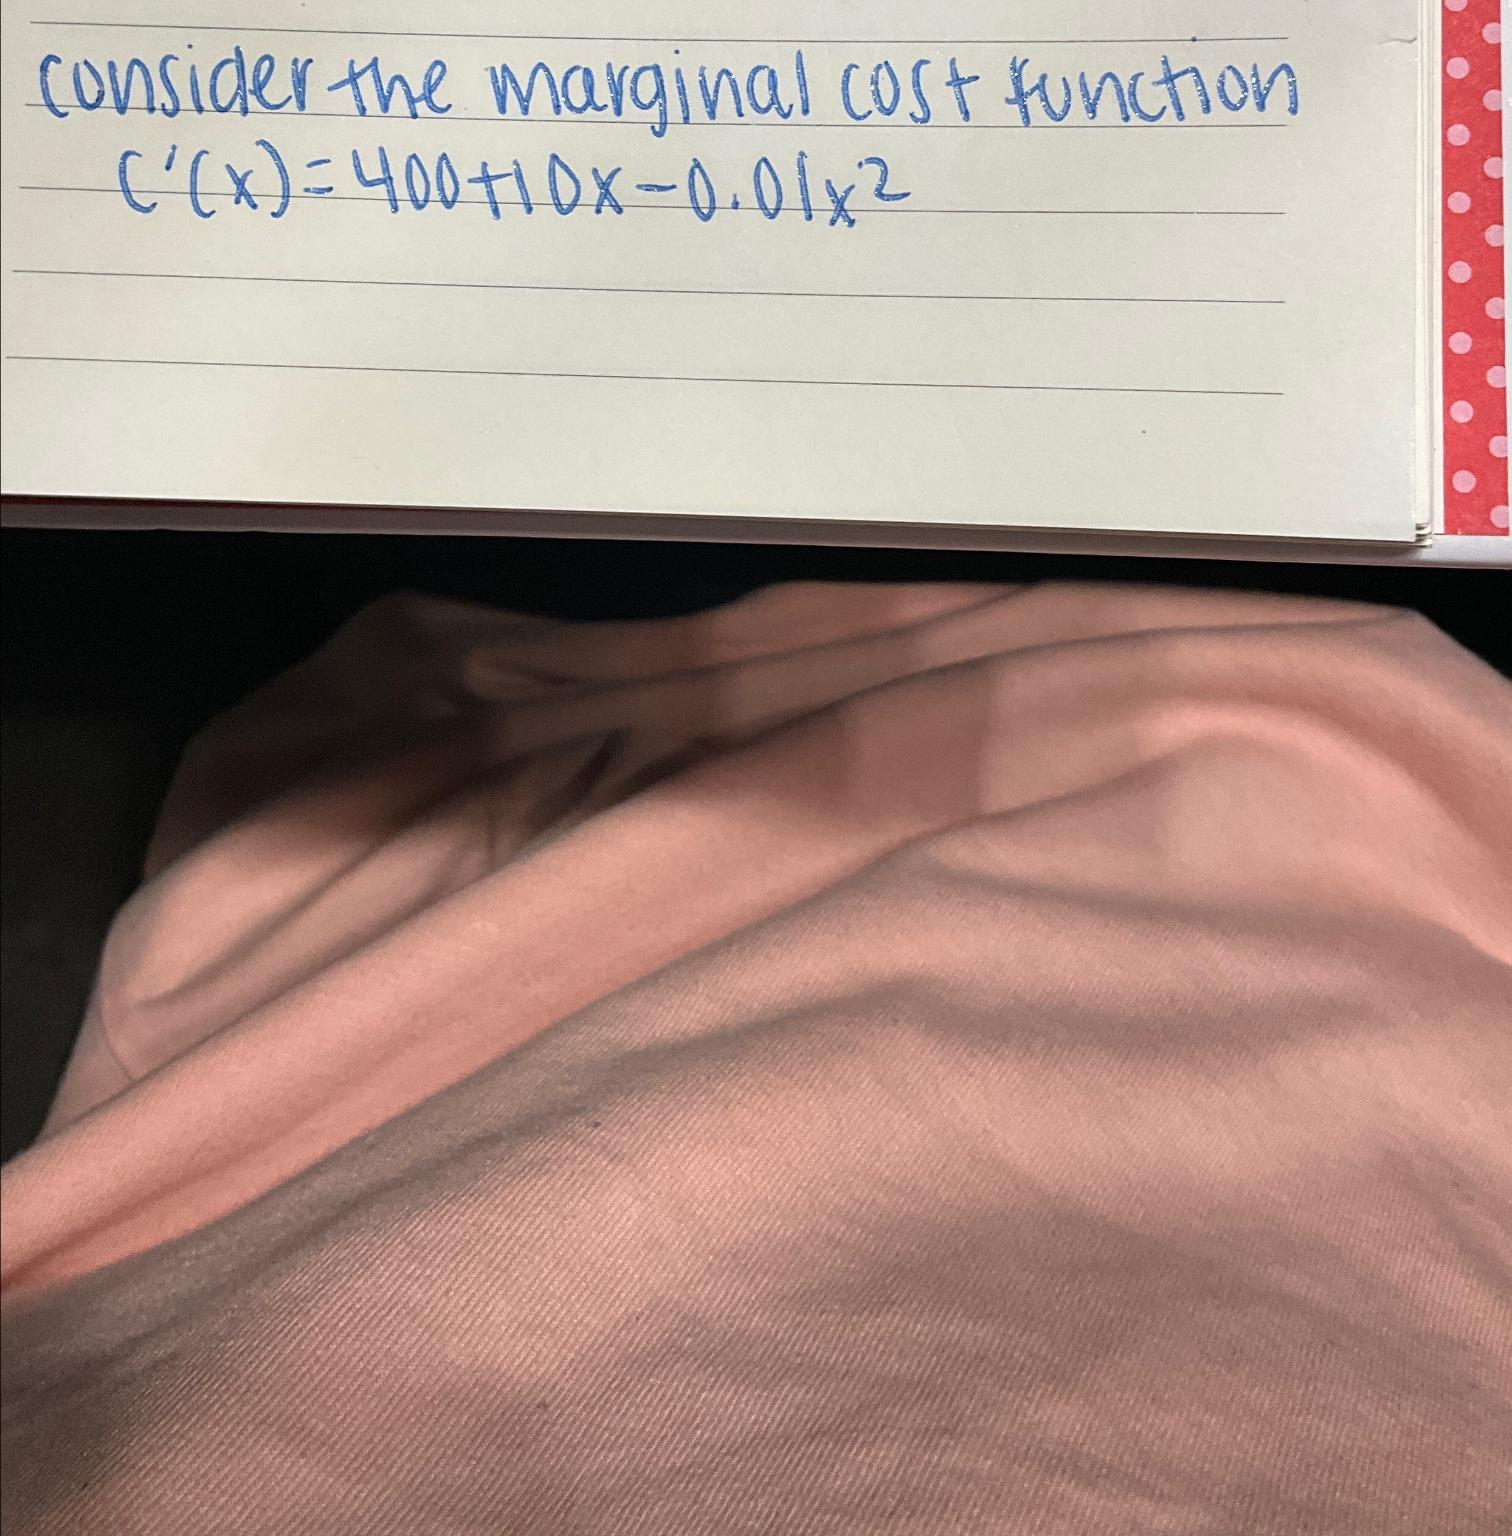 consider the marginal cost function
C'(x)=400+10x-0.01x²